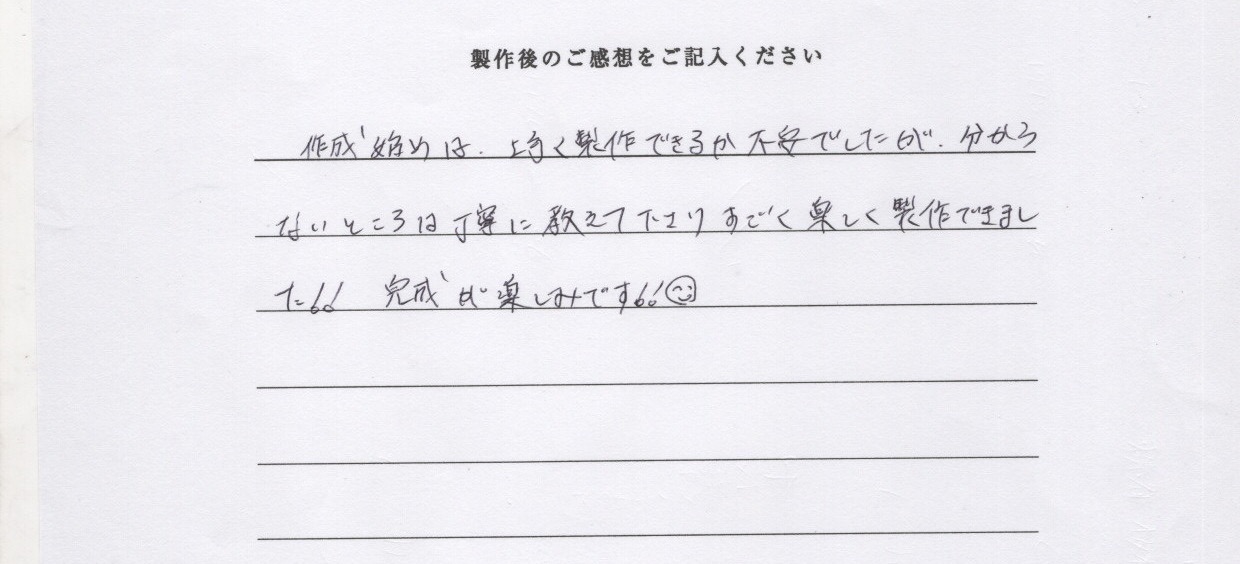 製作後のご感想をご記入ください
作成始めは、上手く製作できるか不安でしたが、分から
ないところは丁寧に教えて下さりすごく楽しく製作できまし
た!! 完成が楽しみです!!